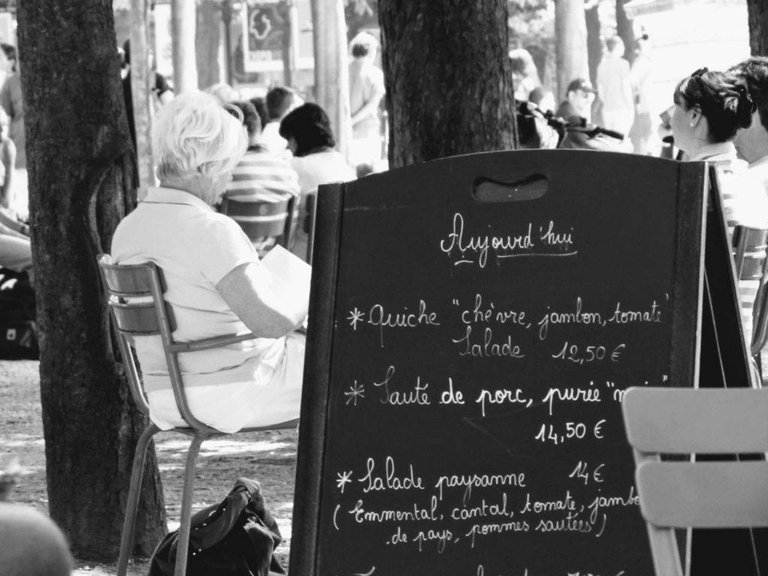 Aujourd'hui
* Quiche "chèvre, jambon, tomate"
Salade 12,50 €
* Sauté de porc, purée
14,50 €
* Salade paysanne 14 €
( Emmental, cantal, tomate,
de pays, pommes sautées )